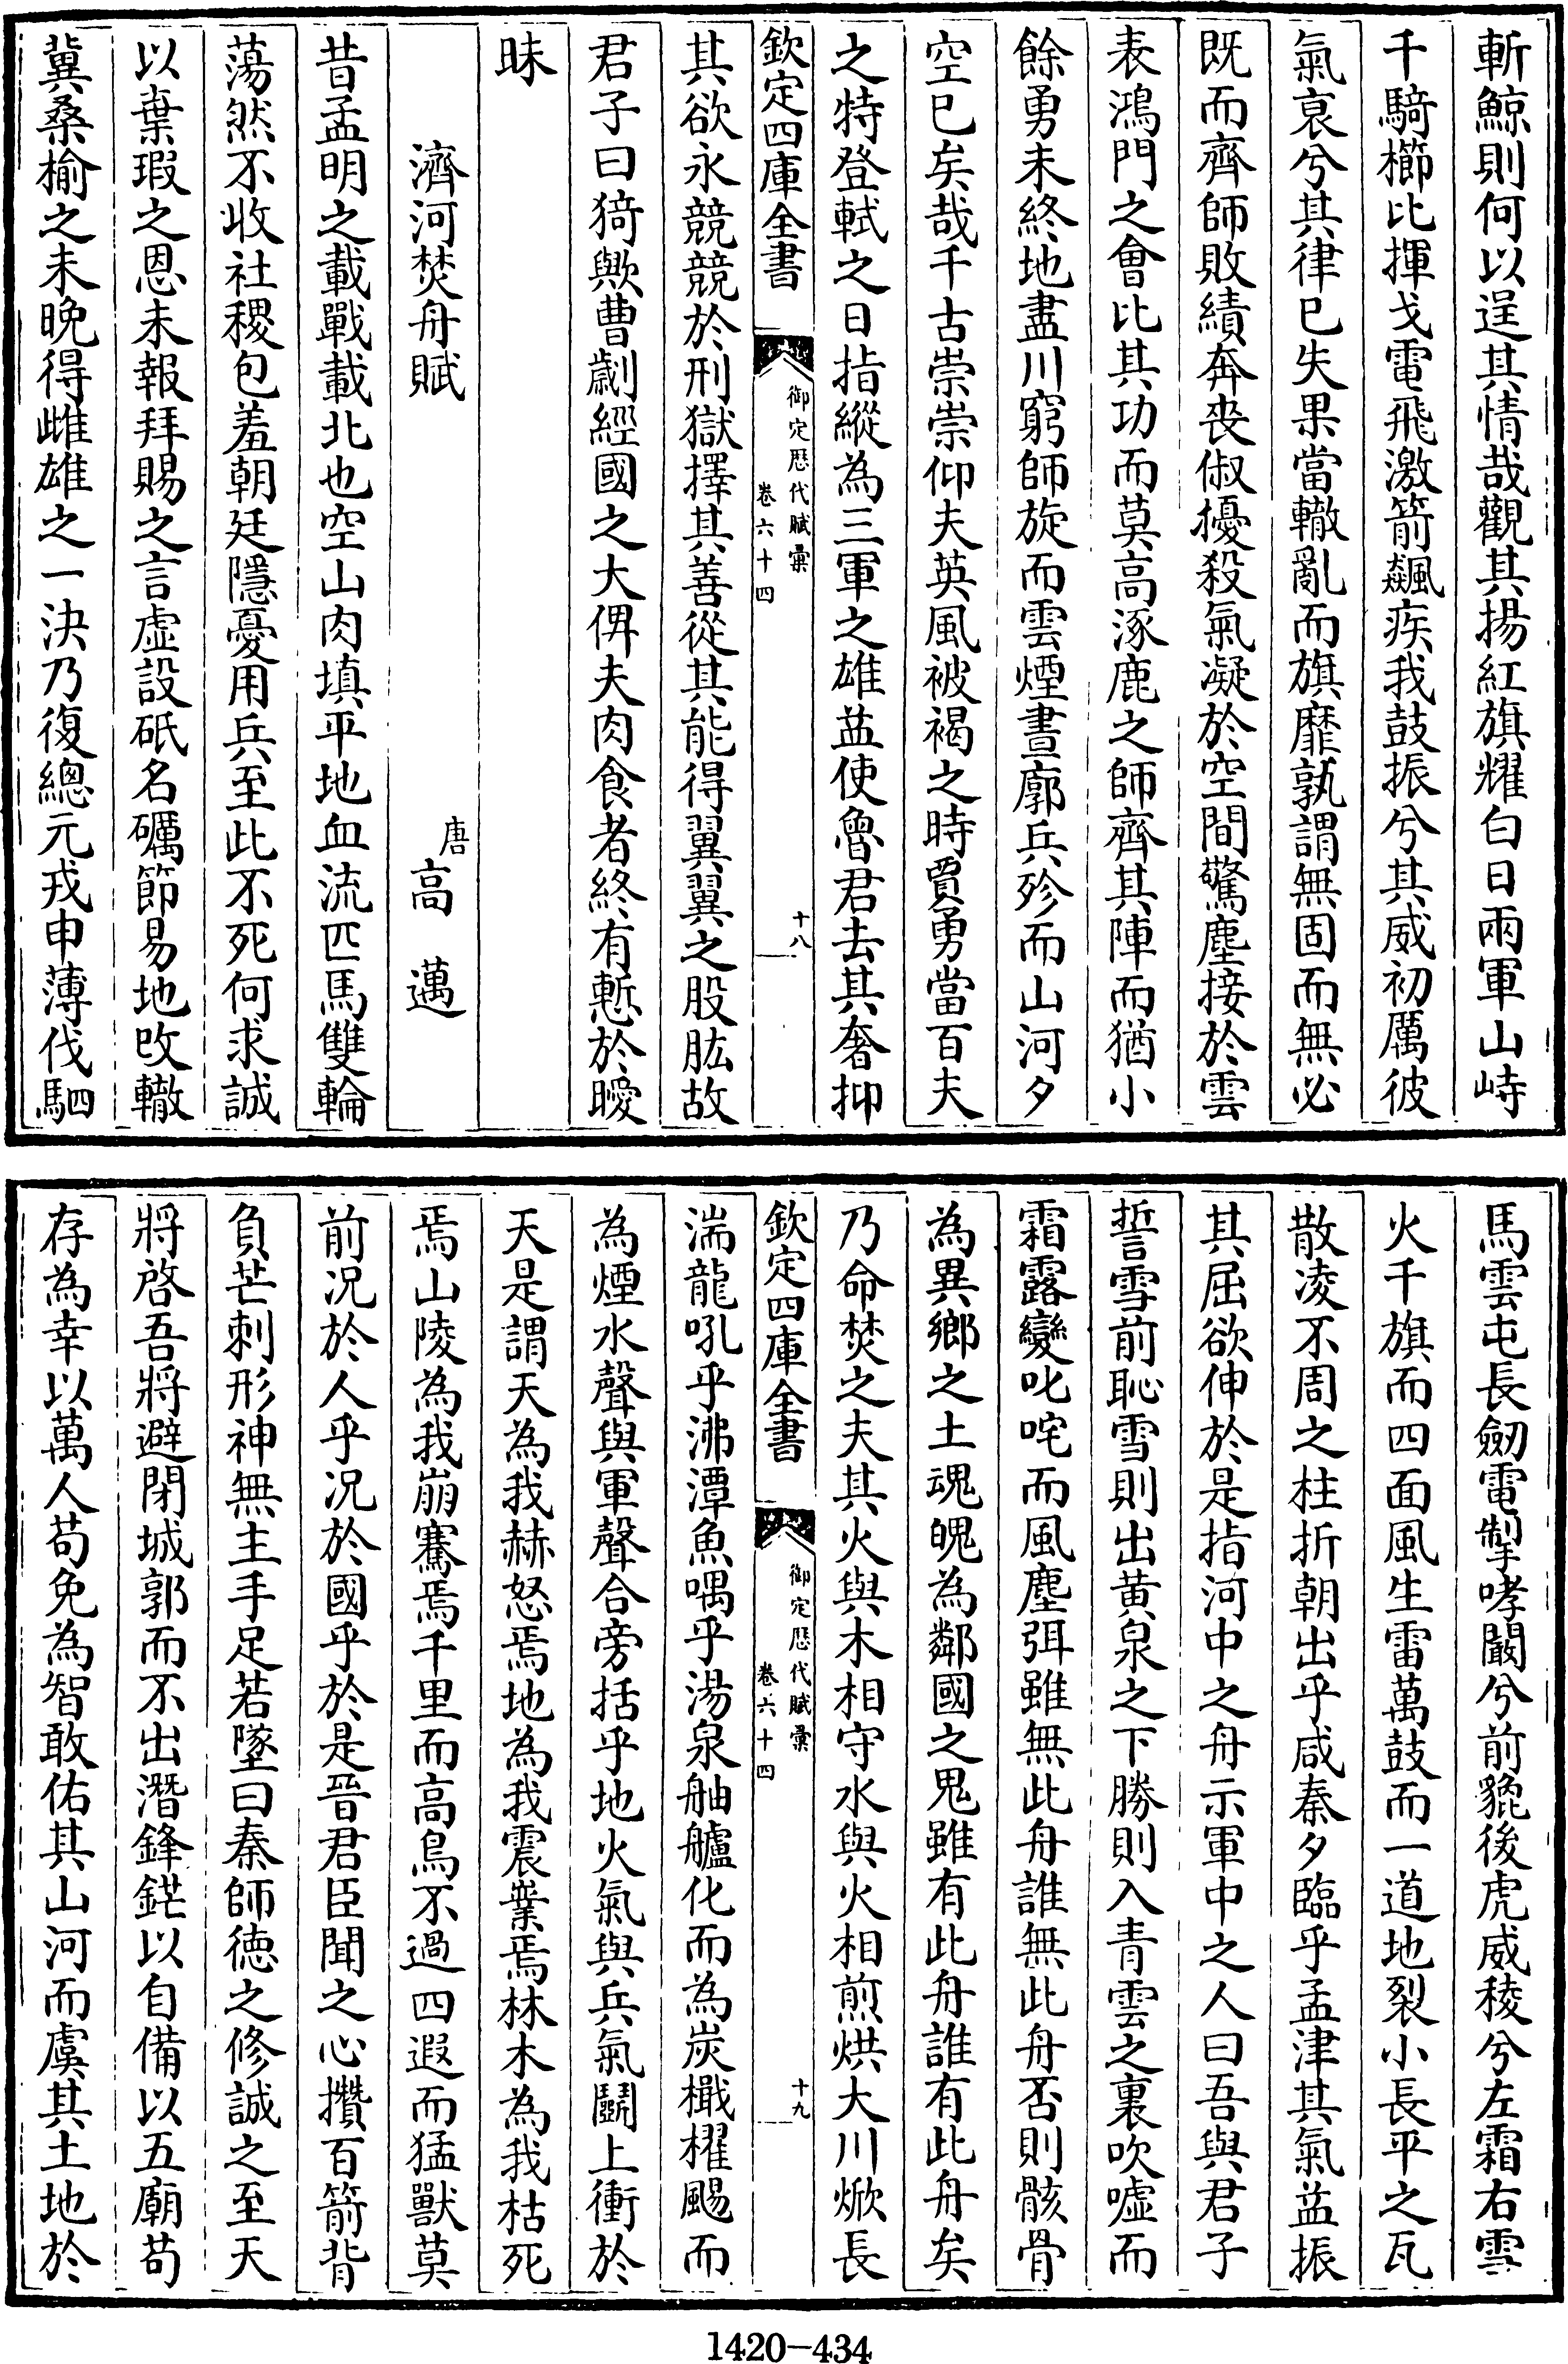 斬鯨則何以逞其情哉觀其揚紅旗耀白日兩軍山峙
千騎櫛比揮戈電飛激箭飆疾我鼓振兮其威初厲彼
氣哀兮其律已失果當轍亂而旗靡孰謂無固而無必
既而齊師敗績奔喪俶擾殺氣凝於空間驚塵接於雲
表鴻門之會比其功而莫高涿鹿之師齊其陣而猶小
餘勇未終地盡川窮師旋而雲煙晝廓兵殄而山河夕
空已矣哉千古崇崇仰夫英風被褐之時賈勇當百夫
之特登軾之日指縱為三軍之雄益使魯君去其奢抑
欽定四庫全書
御定歷代賦彙
卷六十四
十八
其欲永競競於刑獄擇其善從其能得翼翼之股肱故
君子曰猗歟曹劌經國之大俾夫肉食者終有慙於曖
昧
濟河焚舟賦
唐高邁
昔孟明之載戰載北也空山肉填平地血流匹馬雙輪
蕩然不收社稷包羞朝廷隱憂用兵至此不死何求誠
以棄瑕之恩未報拜賜之言虛設砥名礪節易地改轍
冀桑榆之未晚得雌雄之一決乃復總元戎申薄伐駟
馬雲屯長劒電掣哮闞兮前貔後虎威稜兮左霜右雪
火千旗而四面風生雷萬鼓而一道地裂小長平之瓦
散凌不周之柱折朝出乎咸秦夕臨乎孟津其氣益振
其屈欲伸於是指河中之舟示軍中之人曰吾與君子
誓雪前恥雪則出黄泉之下勝則入青雲之裏吹噓而
霜露變叱咤而風塵弭雖無此舟誰無此舟否則骸骨
為異鄉之土魂魄為鄰國之鬼雖有此舟誰有此舟矣
乃命焚之夫其火與木相守水與火相煎烘大川焮長
欽定四庫全書
御定歷代賦彙
卷六十四
十九
湍龍吼乎沸潭魚喁乎湯泉舳艫化而為炭檝櫂颺而
為煙水聲與軍聲合旁括乎地火氣與兵氣鬭上衝於
天是謂天為我赫怒焉地為我震業焉林木為我枯死
焉山陵為我崩騫焉千里而高鳥不過四遐而猛獸莫
前况於人乎况於國乎於是晉君臣聞之心攢百箭背
負芒刺形神無主手足若墜曰秦師德之修誠之至天
將啓吾將避閉城郭而不出潛鋒鋩以自備以五廟苟
存為幸以萬人苟免為智敢佑其山河而虞其土地於
1420-434